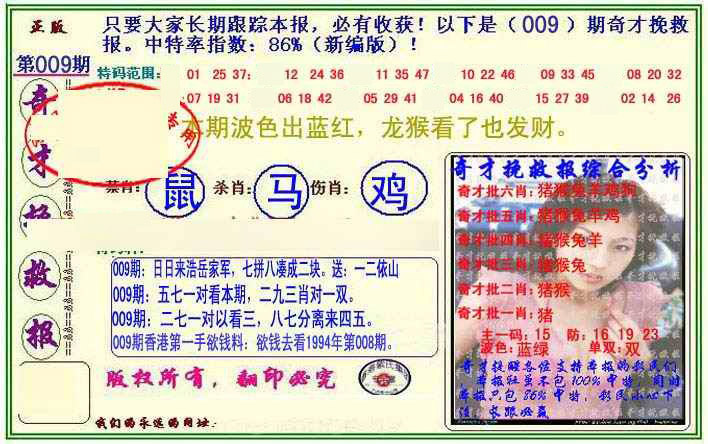 正版
只要大家长期跟踪本报，必有收获！以下是（009）期奇才挽救
报。中特率指数：86%（新编版）！
第009期
特码范围：
01 25 37： 12 24 36 11 35 47 10 22 46 09 33 45 08 20 32
07 19 31 06 18 42 05 29 41 04 16 40 15 27 39 02 14 26
本期波色出蓝红，龙猴看了也发财。
奇
才
救
报
禁肖：鼠 杀肖：马 伤肖：鸡
009期：日日来浩岳家军，七拼八凑成二块。送：一二依山
009期：五七一对看本期，二九三肖对一双。
009期：二七一对以看三，八七分离来四五。
009期香港第一手欲钱料：欲钱去看1994年第008期。
版权所有，翻印必究
我们的永远的网址：
奇才挽救报综合分析
奇才批六肖：猪猴兔羊鸡狗
奇才批五肖：猪猴兔羊鸡
奇才批四肖：猪猴兔羊
奇才批三肖：猪猴兔
奇才批二肖：猪猴
奇才批一肖：猪
主一码：15 防：16 19 23
波色：蓝绿 单双：双
奇才挽救各位支持本报的彩民们
本报虽不包100%中特，但对
本报只包86%中特，彩民小心下
注，长跟必赢